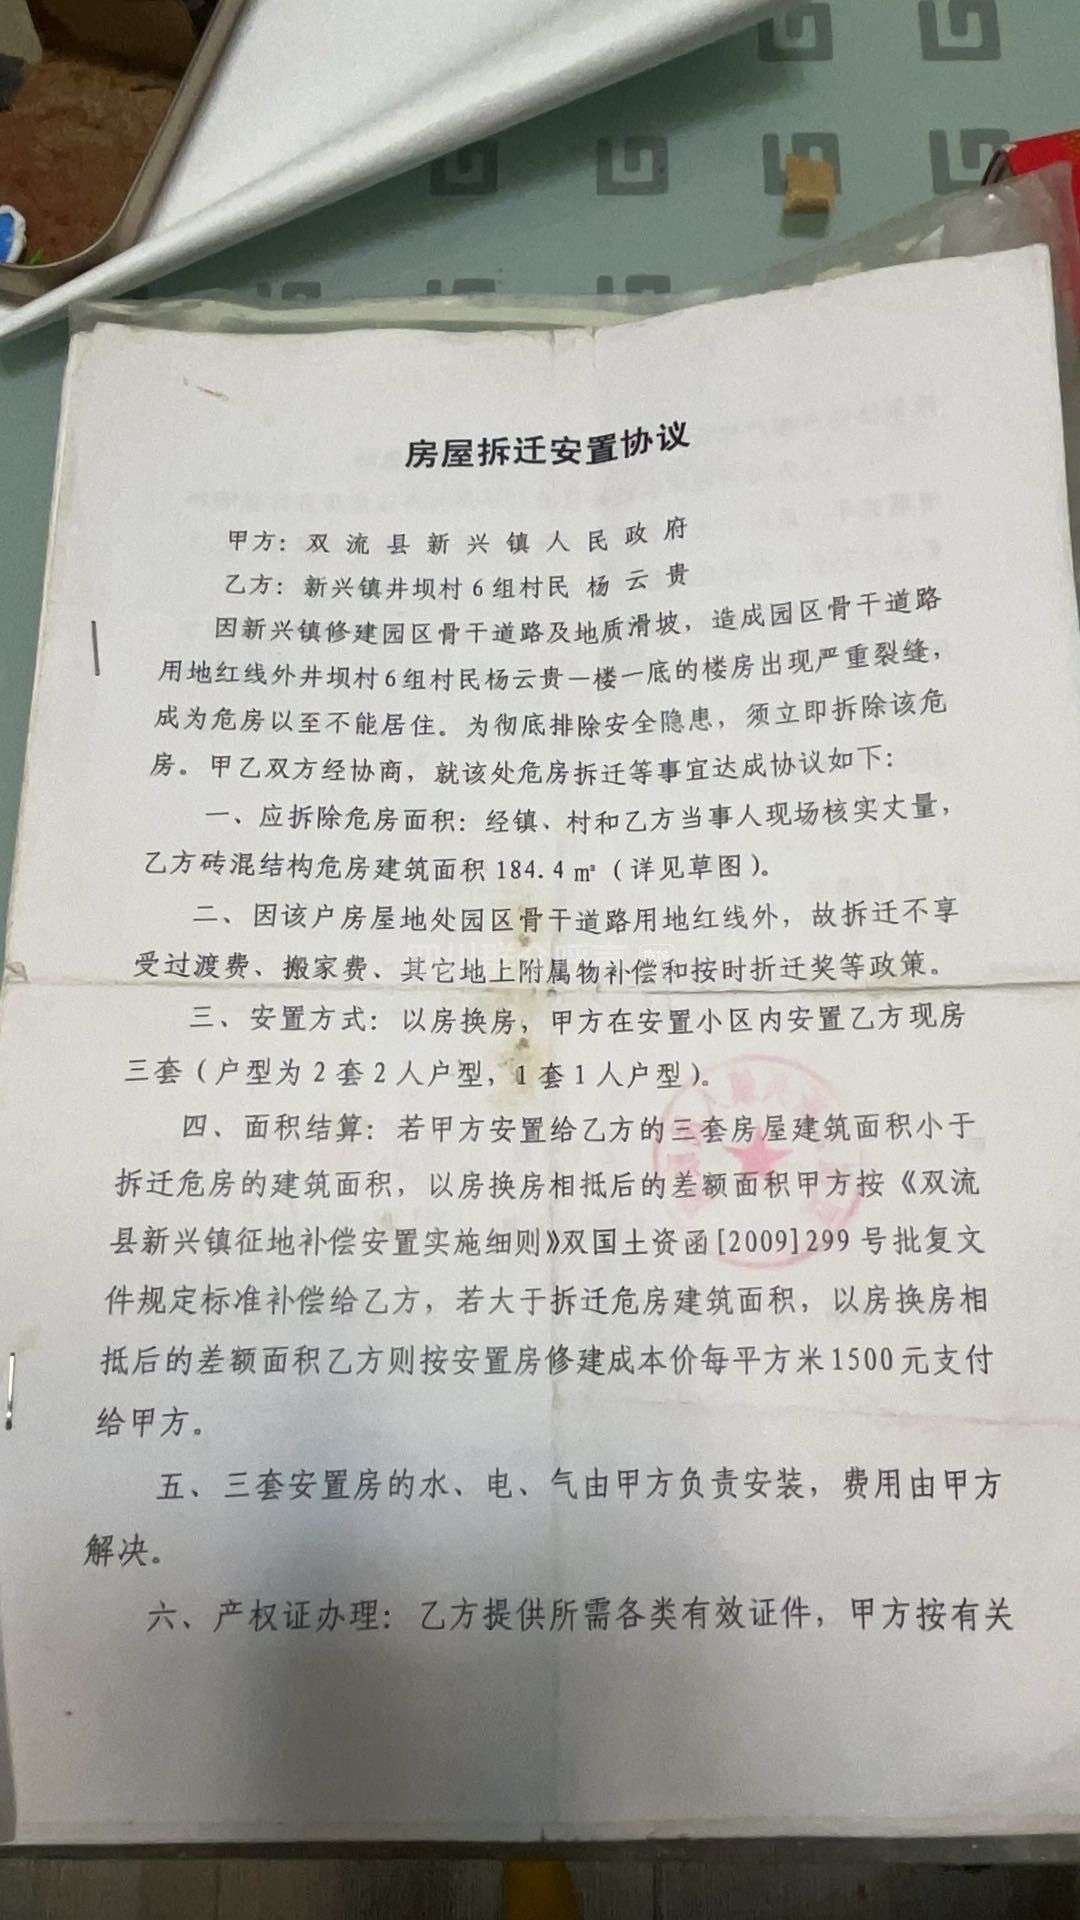 房屋拆迁安置协议
甲方：双流县新兴镇人民政府
乙方：新兴镇井坝村6组村民杨云贵
因新兴镇修建园区骨干道路及地质滑坡，造成园区骨干道路
用地红线外井坝村6组村民杨云贵一楼一底的楼房出现严重裂缝，
成为危房以至不能居住。为彻底排除安全隐患，须立即拆除该危
房。甲乙双方经协商，就该处危房拆迁等事宜达成协议如下：
一、应拆除危房面积：经镇、村和乙方当事人现场核实丈量，
乙方砖混结构危房建筑面积184.4㎡（详见草图）。
二、因该户房屋地处园区骨干道路用地红线外，故拆迁不享
受过渡费、搬家费、其它地上附属物补偿和按时折迁奖等政策。
三、安置方式：以房换房，甲方在安置小区内安置乙方现房
三套（户型为2套2人户型，1套1人户型）。
四、面积结算：若甲方安置给乙方的三套房屋建筑面积小于
拆迁危房的建筑面积，以房换房相抵后的差额面积甲方按《双流
县新兴镇征地补偿安置实施细则》双国土资函[2009]299号批复文
件规定标准补偿给乙方，若大于拆迁危房建筑面积，以房换房相
抵后的差额面积乙方则按安置房修建成本价每平方米1500元支付
给甲方。
五、三套安置房的水、电、气由甲方负责安装，费用由甲方
解决。
六、产权证办理：乙方提供所需各类有效证件，甲方按有关